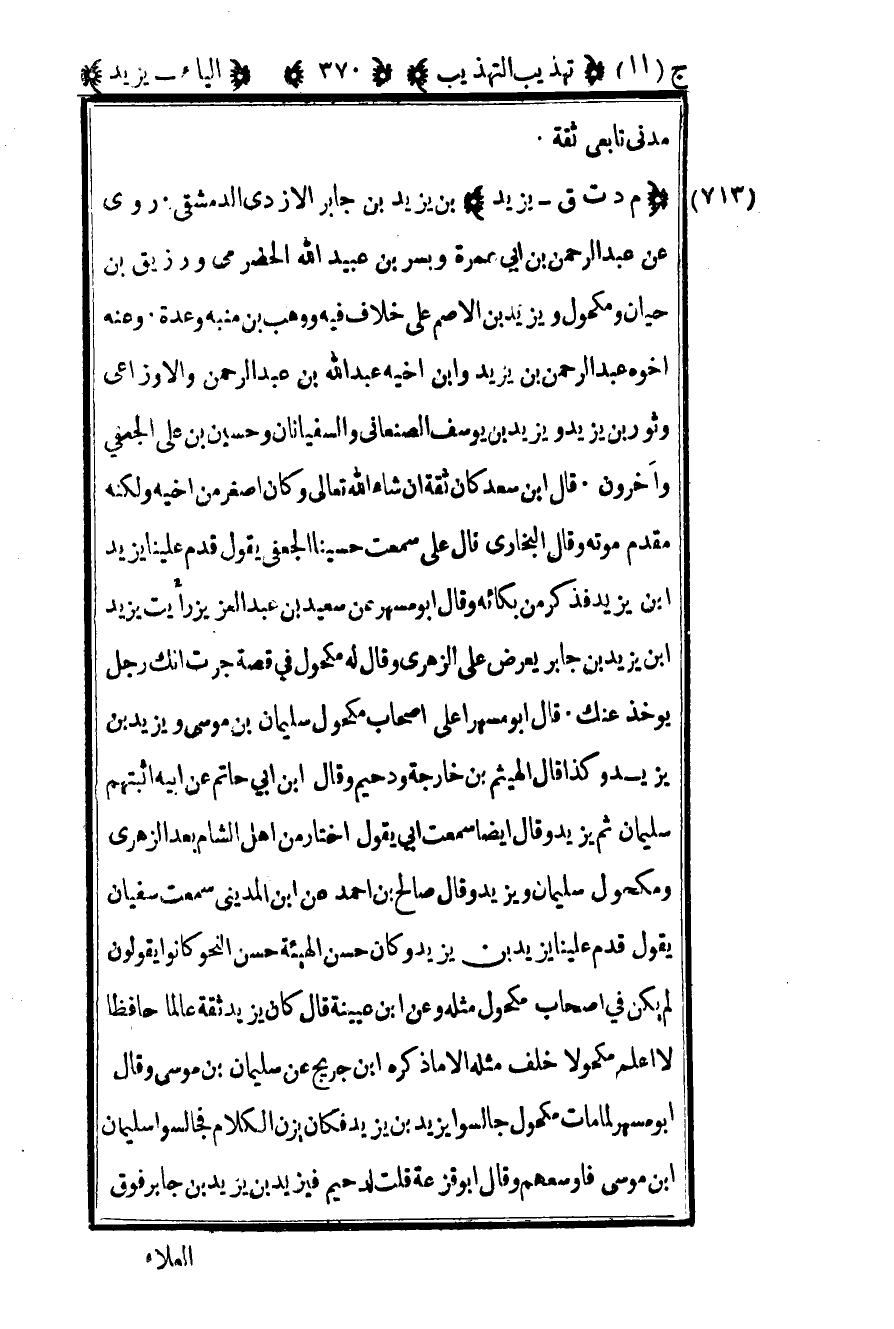 ج (١١) ﴿ تهذيب التهذيب ﴾ ﴿ ٣٧٠ ﴾ ﴿ الياء ـ يزيد ﴾
مدنى تابعى ثقة ٠
(٧١٣) ﴿ م د ت ق ـ يزيد ﴾ بن يزيد بن جابر الازدى الدمشقى ٠ روى
عن عبدالرحمن بن ابي عمرة وبسر بن عبيد الله الحضرمى ورزيق بن
حيان ومكحول ويزيد بن الاصم على خلاف فيه ووهب بن منبه وعدة ٠ وعنه
اخوه عبدالرحمن بن يزيد وابن اخيه عبدالله بن عبدالرحمن والاوزاعى
وثور بن يزيد ويزيد بن يوسف الصنعانى والسفيانان وحسين بن على الجعفي
وآخرون ٠ قال ابن سعد كان ثقة ان شاء الله تعالى وكان اصغر من اخيه ولكنه
مقدم موته وقال البخارى قال على سمعت حسينا الجعفى يقول قدم علينا يزيد
ابن يزيد فذكر من بكائه وقال ابو مسهر عن سعيد بن عبدالعزيز رأيت يزيد
ابن يزيد بن جابر يعرض على الزهرى وقال له مكحول في قصة جرت انك رجل
يوخذ عنك ٠ قال ابو مسهر اعلى اصحاب مكحول سليمان بن موسى ويزيد بن
يزيد وكذا قال الهيثم بن خارجة ودحيم وقال ابن ابي حاتم عن ابيه اثبتهم
سليمان ثم يزيد وقال ايضا سمعت ابي يقول اختار من اهل الشام بعد الزهرى
ومكحول سليمان ويزيد وقال صالح بن احمد عن ابن المدينى سمعت سفيان
يقول قدم علينا يزيد بن يزيد وكان حسن الهيئة حسن النحو كانوا يقولون
لم يكن في اصحاب مكحول مثله وعن ابن عيينة قال كان يزيد ثقة عالما حافظا
لا اعلم مكحولا خلف مثله الا ما ذكره ابن جريج عن سليمان بن موسى وقال
ابو مسهر لما مات مكحول جالسوا يزيد بن يزيد فكان يزن الكلام فجالسوا سليمان
ابن موسى فاوسعهم وقال ابو قزعة قلت لدحيم فيزيد بن يزيد بن جابر فوق
العلاء